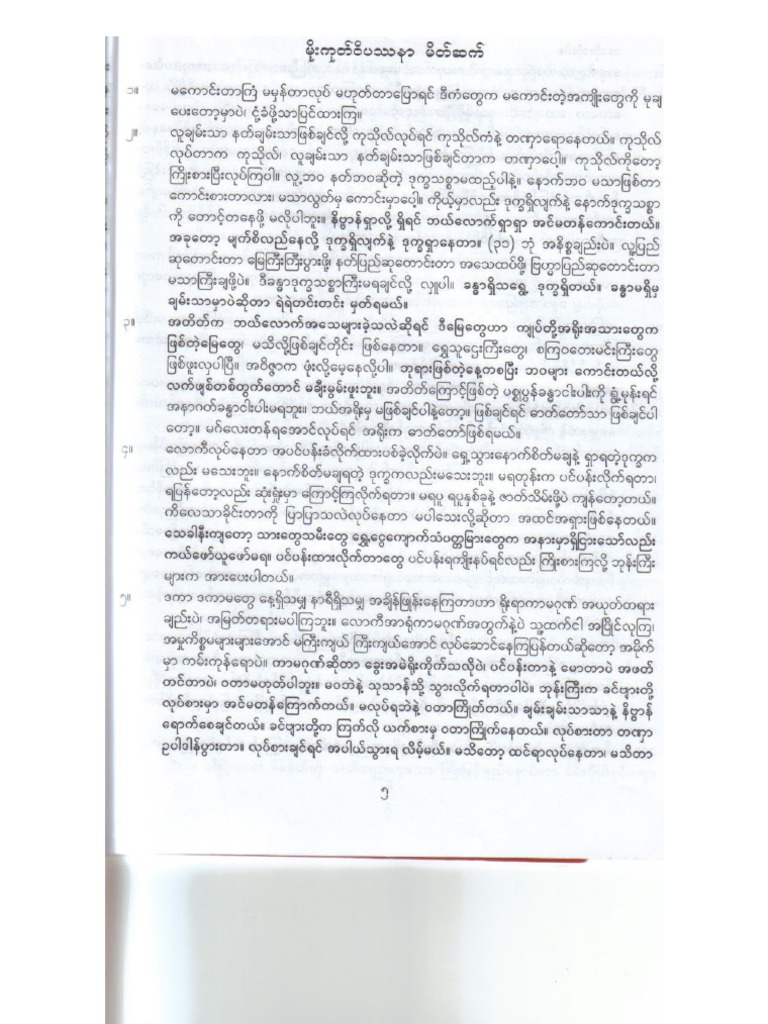 မိုးကုတ်ဝိပဿနာ မိတ်ဆက်
၁။ မကောင်းတာကြံ မမှန်တာလုပ် မဟုတ်တာပြောရင် ဒီကံတွေက မကောင်းတဲ့အကျိုးတွေကို မုချ
ပေးတော့မှာပဲ၊ ငုံ့ခံဖို့သာပြင်ထားကြ။
၂။ လူချမ်းသာ နတ်ချမ်းသာဖြစ်ချင်လို့ ကုသိုလ်လုပ်ရင် ကုသိုလ်ကံနဲ့ တဏှာရောနေတယ်။ ကုသိုလ်
လုပ်တာက ကုသိုလ်၊ လူချမ်းသာ နတ်ချမ်းသာဖြစ်ချင်တာက တဏှာပေ့ါ။ ကုသိုလ်ကိုတော့
ကြိုးစားပြီးလုပ်ကြပါ။ လူ့ဘဝ နတ်ဘဝဆိုတဲ့ ဒုက္ခသစ္စာမထည့်ပါနဲ့။ နောက်ဘဝ မသာဖြစ်တာ
ကောင်းစားတာလား၊ မသာလွတ်မှ ကောင်းမှာပေါ့။ ကိုယ့်မှာလည်း ဒုက္ခရှိလျက်နဲ့ နောက်ဒုက္ခသစ္စာ
ကို တောင့်တနေဖို့ မလိုပါဘူး။ နိဗ္ဗာန်ရှာလို့ ရှိရင် ဘယ်လောက်ရှာရှာ အင်မတန်ကောင်းတယ်။
အခုတော့ မျက်စိလည်နေလို့ ဒုက္ခရှိလျက်နဲ့ ဒုက္ခရှာနေတာ။ (၃၁) ဘုံ အနိစ္စချည်းပဲ။ လူ့ပြည်
ဆုတောင်းတာ မြေကြီးကြီးပွားဖို့၊ နတ်ပြည်ဆုတောင်းတာ အသေထပ်ဖို့၊ ဗြဟ္မာပြည်ဆုတောင်းတာ
မသာကြီးချဖို့ပဲ။ ဒီခန္ဓာဒုက္ခသစ္စာကြီးမရချင်လို့ လှူပါ။ ခန္ဓာရှိသရွေ့ ဒုက္ခရှိတယ်။ ခန္ဓာမရှိမှ
ချမ်းသာမှာပဲဆိုတာ ရဲရဲတင်းတင်း မှတ်ရမယ်။
၃။ အတိတ်က ဘယ်လောက်အသေများခဲ့သလဲဆိုရင် ဒီမြေတွေဟာ ကျုပ်တို့အရိုးအသားတွေက
ဖြစ်တဲ့မြေတွေ၊ မသိလို့ဖြစ်ချင်တိုင်း ဖြစ်နေတာ။ ရွှေသူဌေးကြီးတွေ၊ စကြဝတေးမင်းကြီးတွေ
ဖြစ်ဖူးလှပါပြီ။ အဝိဇ္ဇာက ဖုံးလို့မေ့နေလို့ပါ။ ဘုရားဖြစ်တဲ့နေ့ကစပြီး ဘဝများ ကောင်းတယ်လို့
လက်ဖျစ်တစ်တွက်တောင် မချီးမွမ်းဖူးဘူး။ အတိတ်ကြောင့်ဖြစ်တဲ့ ပစ္စုပ္ပန်ခန္ဓာငါးပါးကို ရွံ့မုန်းရင်
အနာဂတ်ခန္ဓာငါးပါးမရဘူး။ ဘယ်အရိုးမှ မဖြစ်ချင်ပါနဲ့တော့။ ဖြစ်ချင်ရင် ဓာတ်တော်သာ ဖြစ်ချင်ပါ
တော့။ မဂ်လေးတန်ရအောင်လုပ်ရင် အရိုးက ဓာတ်တော်ဖြစ်ရမယ်။
၄။ လောကီလုပ်နေတာ အပင်ပန်းခံလိုက်ထားပစ်ခဲ့လိုက်ပဲ။ ရှေ့သွားနောက်စိတ်မချနဲ့ ရှာရတဲ့ဒုက္ခက
လည်း မသေးဘူး။ နောက်စိတ်မချရတဲ့ ဒုက္ခကလည်းမသေးဘူး။ မရတုန်းက ပင်ပန်းလိုက်ရတာ၊
ရပြန်တော့လည်း ဆုံးရှုံးမှာ ကြောင့်ကြလိုက်ရတာ။ မရပူ ရပူနှစ်ခုနဲ့ ဇာတ်သိမ်းဖို့ပဲ ကျန်တော့တယ်။
ကိလေသာခိုင်းတာကို ပြာပြာသလဲလုပ်နေတာ မပါသေးလို့ဆိုတာ အထင်အရှားဖြစ်နေတယ်။
သေခါနီးကျတော့ သားတွေသမီးတွေ ရွှေငွေကျောက်သံပတ္တမြားတွေက အနားမှာရှိငြားသော်လည်း
ကယ်ဖော်ယူဖော်မရ။ ပင်ပန်းထားလိုက်တာတွေ ပင်ပန်းရကျိုးနပ်ရင်လည်း ကြိုးစားကြလို့ ဘုန်းကြီး
များက အားပေးပါတယ်။
၅။ ဒကာ ဒကာမတွေ နေ့ရှိသမျှ နာရီရှိသမျှ အချိန်ဖြုန်းနေကြတာဟာ ရိုးရာကာမဂုဏ် အယုတ်တရား
ချည်းပဲ၊ အမြတ်တရားမပါကြဘူး။ လောကီအာရုံကာမဂုဏ်အတွက်နဲ့ပဲ သူ့ထက်ငါ အပြိုင်လုကြ၊
အမှုကိစ္စမများများအောင် မကြီးကျယ် ကြီးကျယ်အောင် လုပ်ဆောင်နေကြပြန်တယ်ဆိုတော့ အမိုက်
မှာ ကမ်းကုန်ရောပဲ။ ကာမဂုဏ်ဆိုတာ ခွေးအမဲရိုးကိုက်သလိုပဲ၊ ပင်ပန်းတာနဲ့ မောတာပဲ အဖတ်
တင်တာပဲ၊ ဝတာမဟုတ်ပါဘူး။ မဝဘဲနဲ့ သုသာန်သို့ သွားလိုက်ရတာဝါပဲ။ ဘုန်းကြီးက ခင်ဗျားတို့
လုပ်စားမှာ အင်မတန်ကြောက်တယ်။ မလုပ်ရဘဲနဲ့ ဝတာကြိုတ်တယ်။ ချမ်းချမ်းသာသာနဲ့ နိဗ္ဗာန်
ရောက်စေချင်တယ်။ ခင်ဗျားတို့က ကြက်လို ယက်စားမှ ဝတာကြိုက်နေတယ်။ လုပ်စားတာ တဏှာ
ဥပါဒါန်ပွားတာ။ လုပ်စားချင်ရင် အပါယ်သွားရ လိမ့်မယ်။ မသိတော့ ထင်ရာလုပ်နေတာ၊ မသိတာ
၅